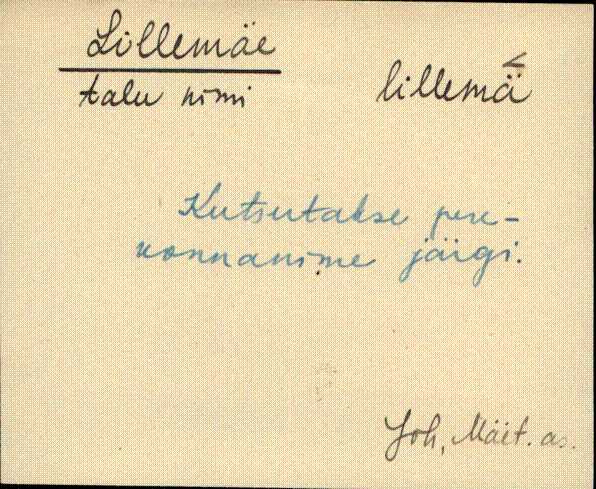 Lillemäe
talu nimi
lillemä
Kutsutakse pere-
konnanime järgi.
Joh, Mäet. as.